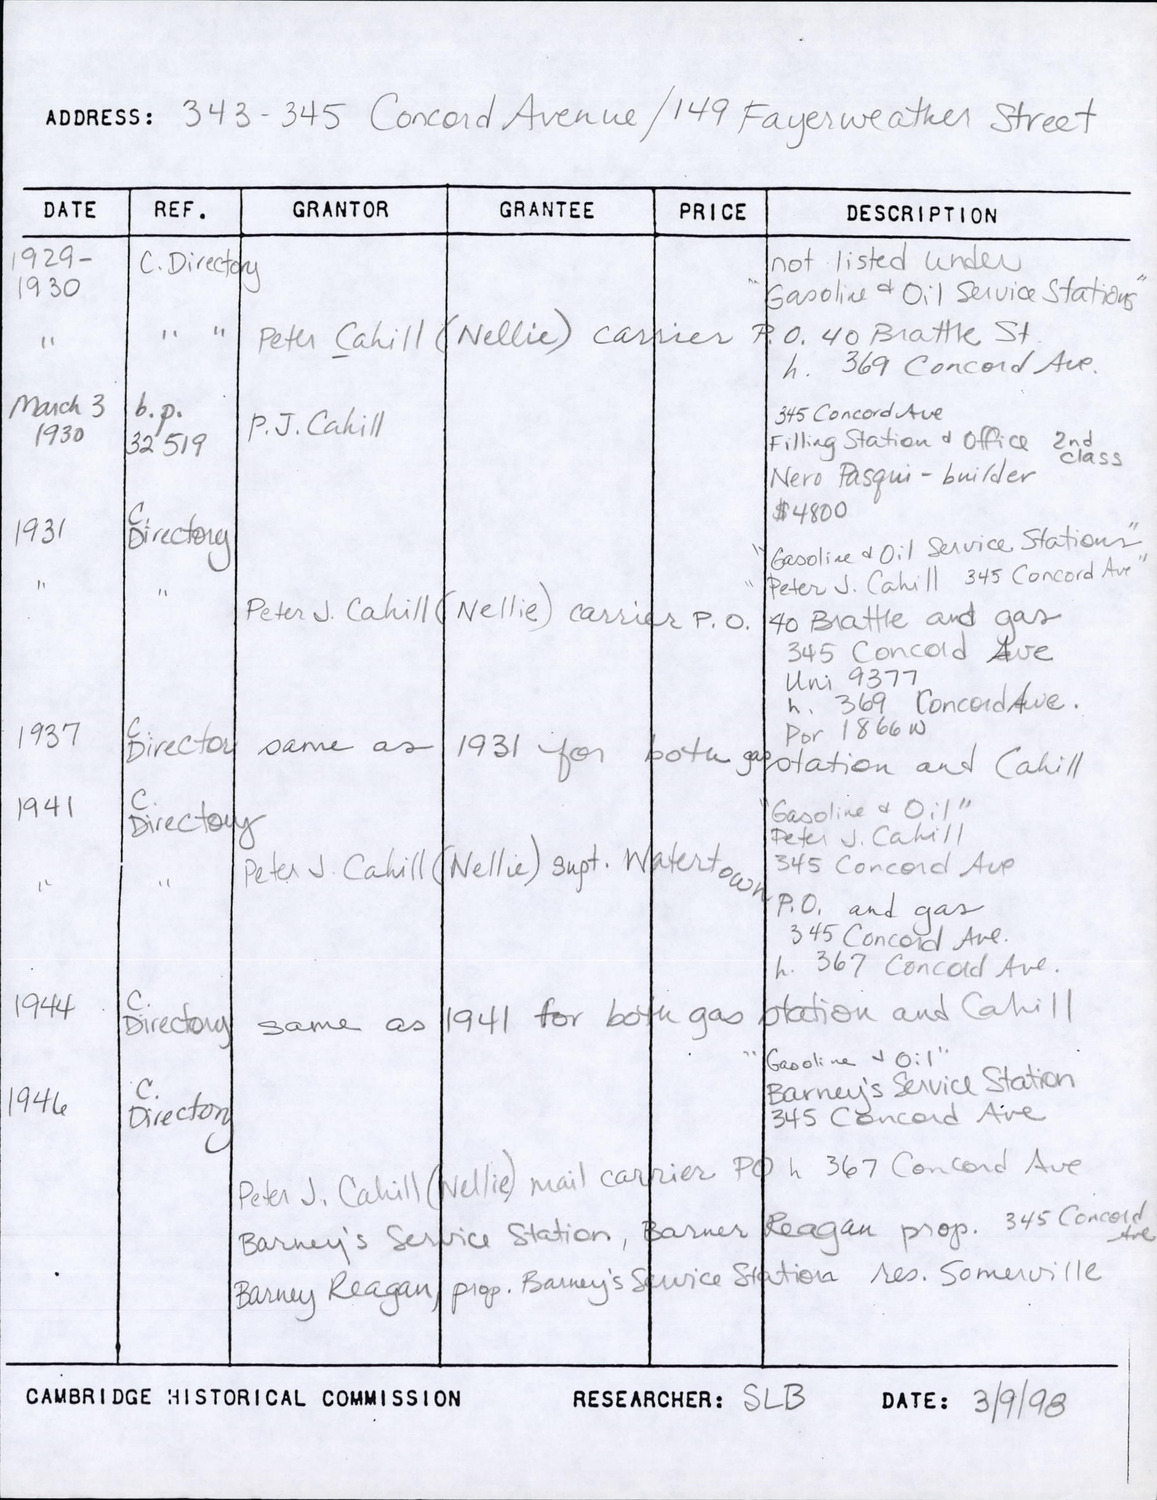 ADDRESS: 343-345 Concord Avenue/149 Fayerweather Street
DATE REF. GRANTOR GRANTEE PRICE DESCRIPTION
1929-1930 C. Directory not listed under
"Gasoline & Oil Service Stations"
" " " Peter Cahill (Nellie) carrier P.O. 40 Brattle St.
h. 369 Concord Ave.
March 3 1930 b.p. 32519 P.J. Cahill 345 Concord Ave
Filling Station & Office 2nd class
Nero Pasqui - builder
$4800
1931 C. Directory "Gasoline & Oil Service Stations"
" " "Peter J. Cahill 345 Concord Ave"
Peter J. Cahill (Nellie) carrier P.O. 40 Brattle and gas
345 Concord Ave
Uni 9377
h. 369 Concord Ave.
Por 1866 W
1937 C. Director same as 1931 for both gas station and Cahill
1941 C. Directory "Gasoline & Oil"
Peter J. Cahill
345 Concord Ave
" " Peter J. Cahill (Nellie) supt. Watertown
P.O. and gas
345 Concord Ave.
h. 367 Concord Ave.
1944 C. Directory same as 1941 for both gas station and Cahill
1946 C. Directory "Gasoline & Oil"
Barney's Service Station
345 Concord Ave
Peter J. Cahill (Nellie) mail carrier PO h 367 Concord Ave
Barney's Service Station, Barner Reagan prop. 345 Concord Ave
Barney Reagan, prop. Barney's Service Station res. Somerville
CAMBRIDGE HISTORICAL COMMISSION RESEARCHER: SLB DATE: 3/9/98